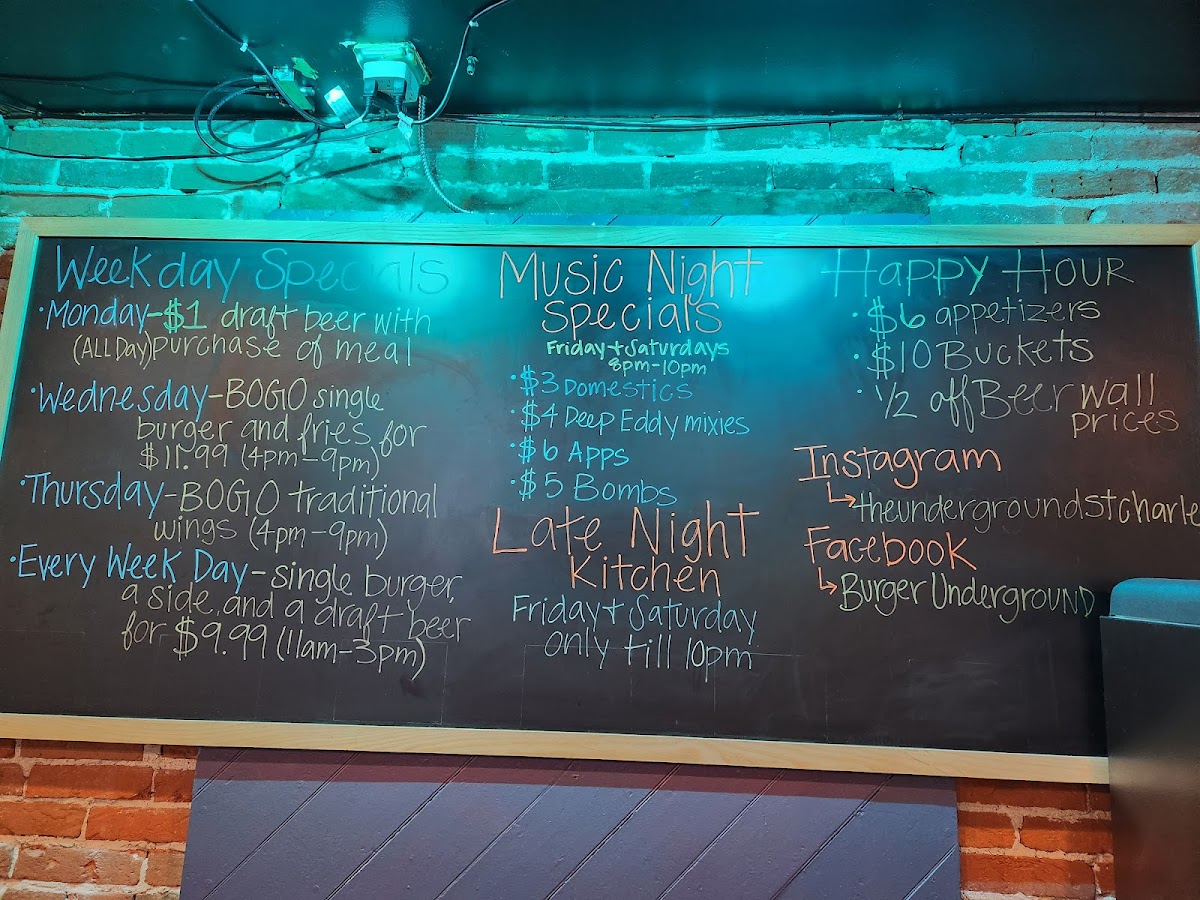 Weekday Specials
•Monday-$1 draft beer with
(ALL Day) purchase of meal
•Wednesday-BOGO single
burger and fries for
$11.99 (4pm-9pm)
•Thursday-BOGO traditional
wings (4pm-9pm)
•Every Week Day-single burger,
a side, and a draft beer
for $9.99 (11am-3pm)
Music Night
Specials
Friday + Saturdays
8pm-10pm
•$3 Domestics
•$4 Deep Eddy mixies
•$6 Apps
•$5 Bombs
Late Night
Kitchen
Friday + Saturday
only till 10pm
Happy Hour
•$6 appetizers
•$10 Buckets
•1/2 off Beer wall
prices
Instagram
theundergroundstcharle
Facebook
Burger Underground